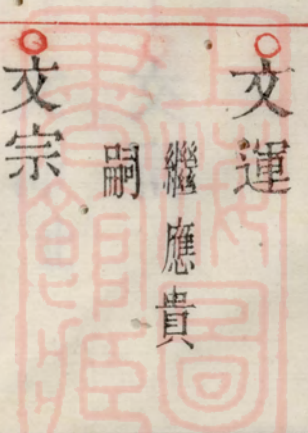 文運
繼應貴
嗣
文宗